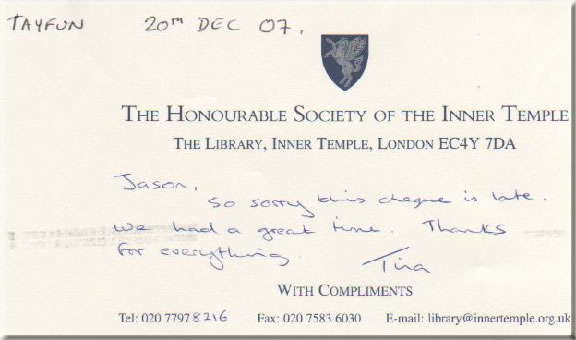 TAYFUN 20TH DEC 07.
THE HONOURABLE SOCIETY OF THE INNER TEMPLE
THE LIBRARY, INNER TEMPLE, LONDON EC4Y 7DA
Jason,
So sorry this cheque is late.
We had a great time. Thanks
for everything.
Tina
WITH COMPLIMENTS
Tel: 020 7797 8216 Fax: 020 7583 6030 E-mail: library@innertemple.org.uk